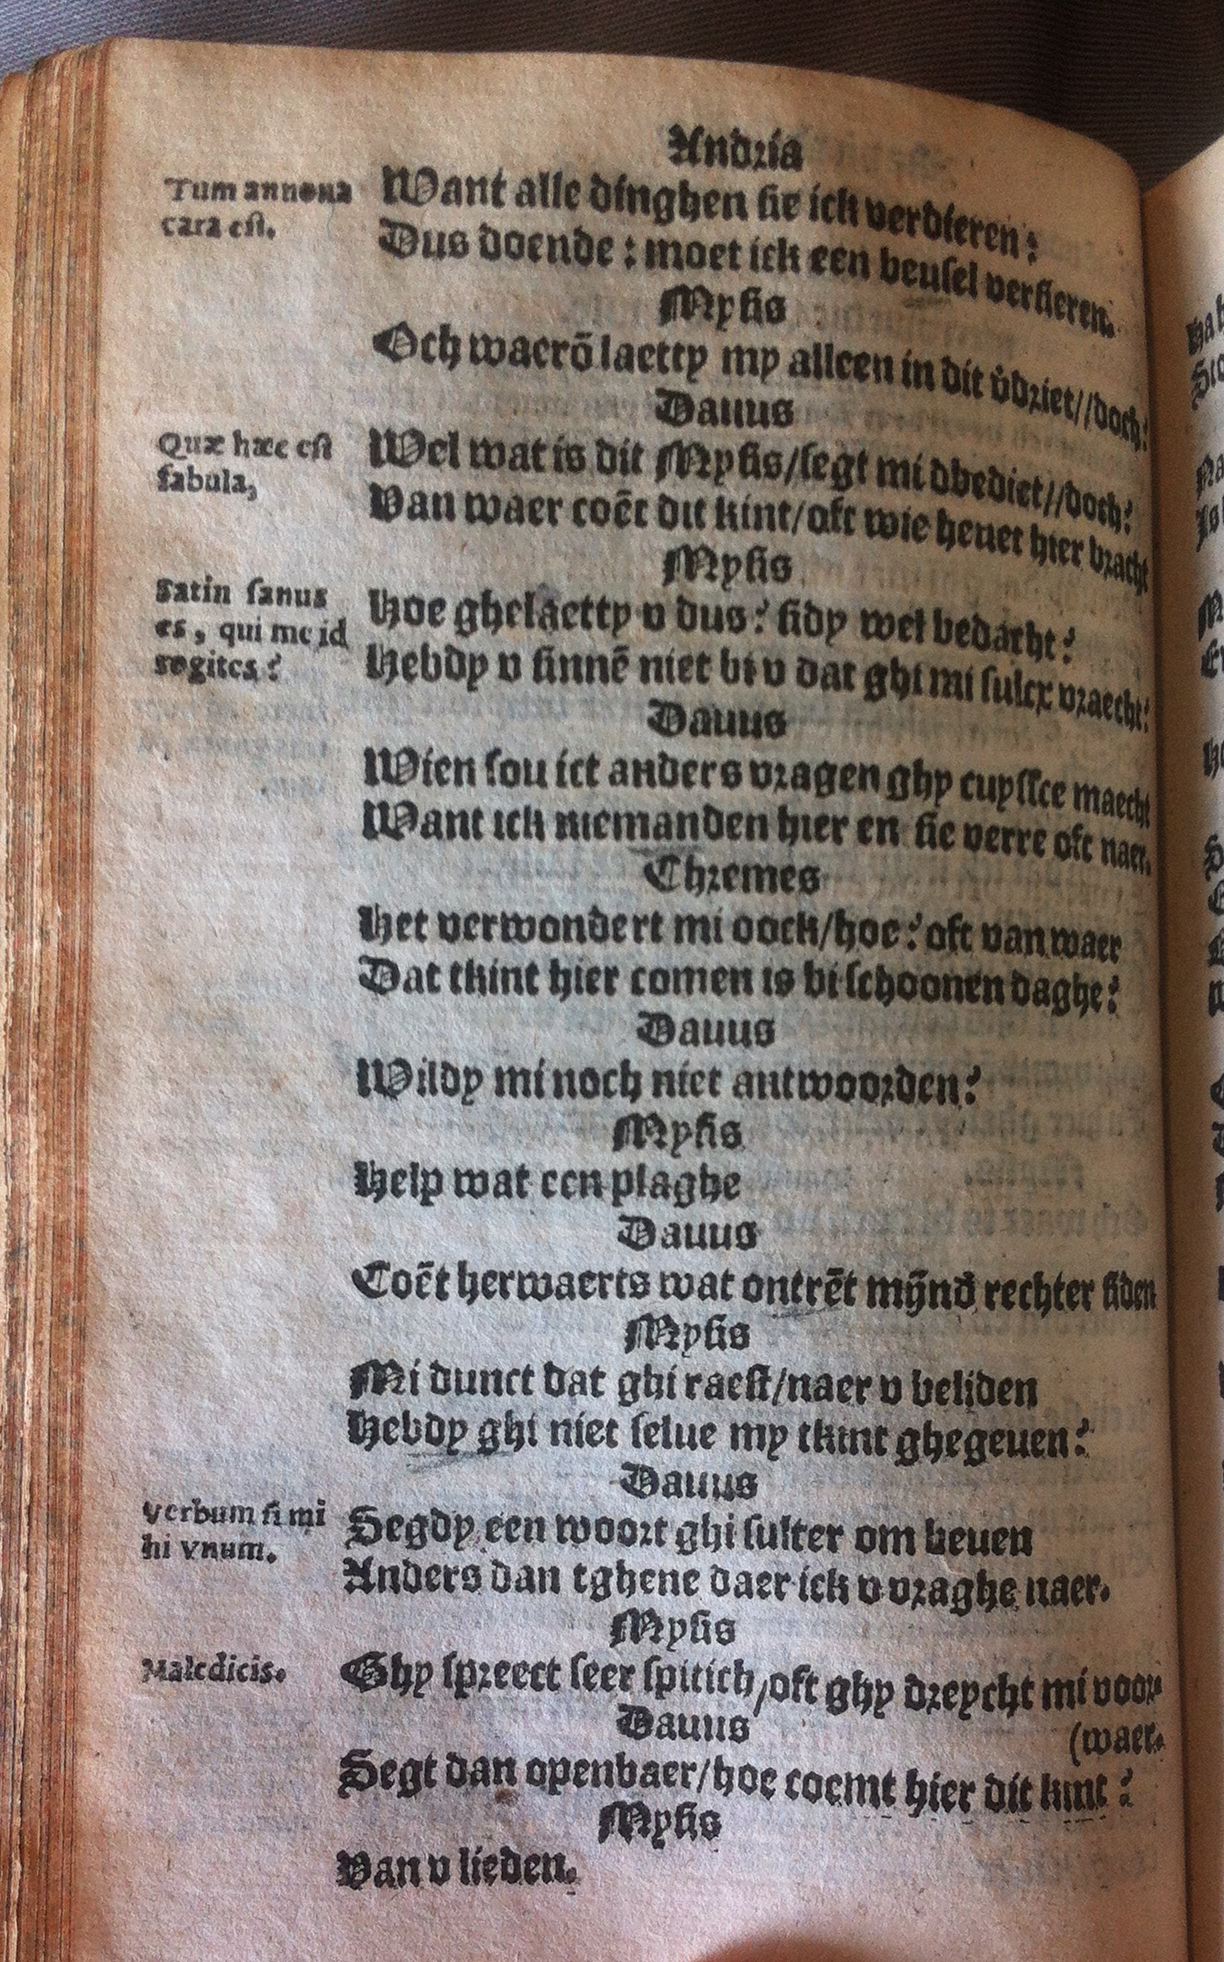 Andria
Tum annona
cara est.
Want alle dinghen sie ick verdieren:
Dus doende: moet ick een beusel versieren.
Mysis
Och waerō laetty my alleen in dit v̄driet//doch?
Dauus
Quæ hæc est
fabula,
Wel wat is dit Mysis/segt mi dbediet//doch?
Van waer coēt dit kint/oft wie heuet hier bracht
Mysis
Satin sanus
es, qui me id
rogites?
Hoe ghelaetty v dus? sidy wel bedacht?
Hebdy v sinnē niet bi v dat ghi mi sulcx vraecht?
Dauus
Wien sou ict anders vragen ghy cuyssce maecht
Want ick niemanden hier en sie verre oft naer.
Chremes
Het verwondert mi oock/hoe? oft van waer
Dat tkint hier comen is bi schoonen daghe?
Dauus
Wildy mi noch niet antwoorden?
Mysis
Help wat een plaghe
Dauus
Coēt herwaerts wat ontrēt mijnd̄ rechter siden
Mysis
Mi dunct dat ghi raest/naer v beliden
Hebdy ghi niet selue my tkint ghegeuen?
Dauus
Verbum si mi
hi vnum.
Segdy een woort ghi sulter om beuen
Anders dan tghene daer ick v vraghe naer.
Mysis
Maledicis.
Ghy spreect seer spitich/oft ghy dreycht mi voor
(waer.
Dauus
Segt dan openbaer/hoe coemt hier dit kint?
Mysis
Van v lieden.